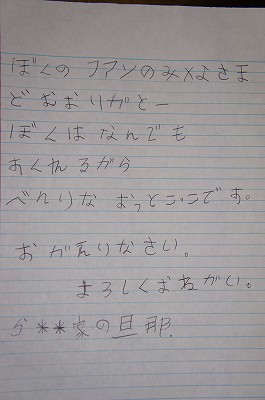 ぼくの ファンのみなさま
どむおりがとー
ぼくはなんでも
おくれるがら
べんりな おっとここです。
おがえりなさい。
よろしくおねがい。
**家の旦那.